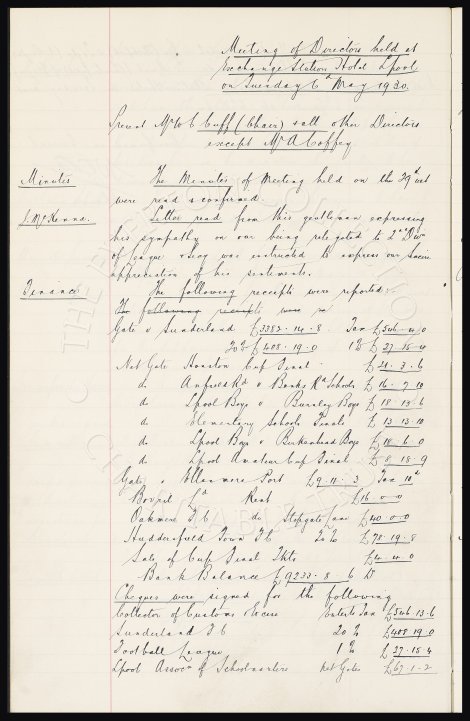 Meeting of Directors held at
Exchange Station Hotel Lpool
on Tuesday 6th May 1930.
Present Mr W C Cuff (Chair) & all other Directors
except Mr A Coffey
Minutes The Minutes of Meeting held on the 29th ult
were read & confirmed.
J. McKenna. Letter read from this gentleman expressing
his sympathy on our being relegated to 2nd Divn
of League & Secy was instructed to express our sincere
appreciation of his sentiments.
Finance The following receipts were reported:-
The following receipts were re
Gate v Sunderland £3382.14.8. Tax £546.4.0
20% £408.19.0 1% £27.15.4
Net Gate Houston Cup Final £21.3.6
do Anfield Rd v Banks Rd Schools £16.7.10
do Lpool Boys v Burnley Boys £18.13.6
do Elementary Schools Finals £13.13.10
do Lpool Boys v Birkenhead Boys £10.6.0
do Lpool Amateur Cup Final £8.18.9
Gate v Ellesmere Port £9.11.3 Tax 10d
Bovril Ld Rent £16.0.0
Oakmere F.C do Stopgate Lane £40.0.0
Huddersfield Town F.C 20% £78.19.8
Sale of Cup Final Tkts £4.4.0
Bank Balance £9233.8.6 Dr
Cheques were signed for the following
Collector of Customs & Excise Enterts Tax £546.13.6
Sunderland F.C 20% £408.19.0
Football League 1% £27.15.4
Lpool Assocn of Schoolmasters Net Gates £67.1.2